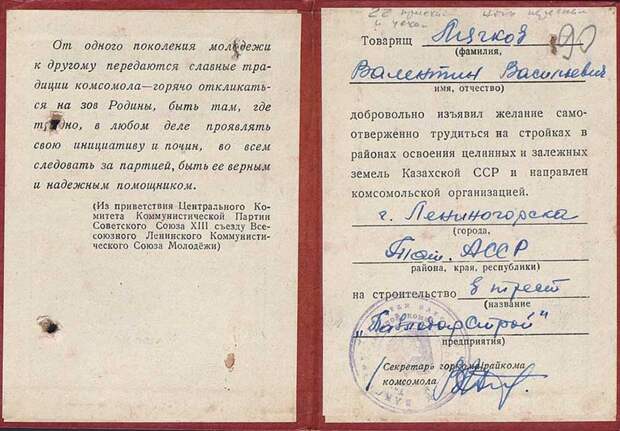 От одного поколения молодежи
к другому передаются славные тра-
диции комсомола—горячо откликать-
ся на зов Родины, быть там, где
трудно, в любом деле проявлять
свою инициативу и почин, во всем
следовать за партией, быть ее верным
и надежным помощником.
(Из приветствия Центрального Ко-
митета Коммунистической Партии
Советского Союза XIII съезду Все-
союзного Ленинского Коммунистиче-
ского Союза Молодёжи)
22
90
Товарищ Пячков
(фамилия,
Валентин Васильевич
имя, отчество)
добровольно изъявил желание само-
отверженно трудиться на стройках в
районах освоения целинных и залежных
земель Казахской ССР и направлен
комсомольской организацией.
г. Лениногорска
(города,
Тат. АССР
района, края, республики)
на строительство в трест
(название
"Павлодар Строй"
предприятия)
Секретарь горкома, райкома
комсомола